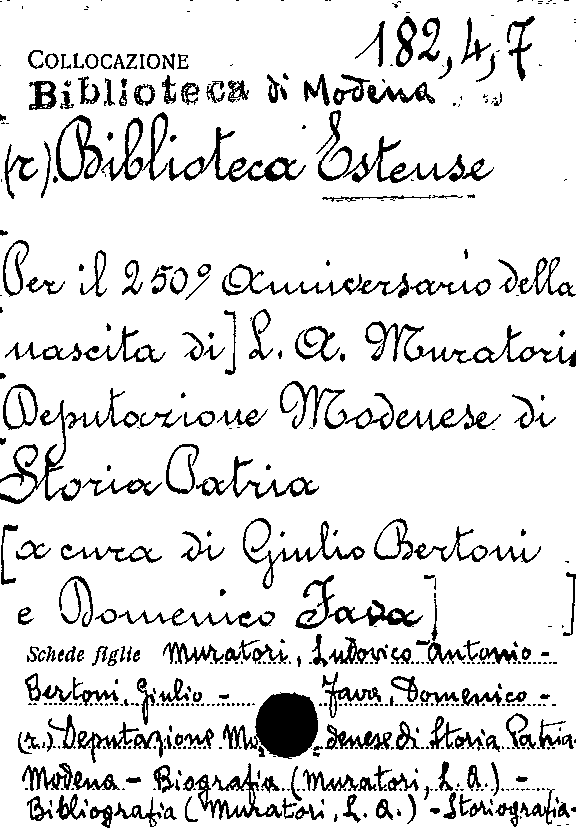 COLLOCAZIONE 182,4,7
Biblioteca di Modena
(r). Biblioteca Estense
[Per il 250º Anniversario della
nascita di] L. A. Muratori.
[Deputazione Modenese di
Storia Patria
[a cura di Giulio Bertoni
e Domenico Fava] ]
Schede figlie Muratori, Ludovico Antonio -
Bertoni, Giulio - Fava, Domenico -
(r.) Deputazione Modenese di Storia Patria
Modena - Biografia (Muratori, L. A.) -
Bibliografia (Muratori, L. A.) - Storiografia-